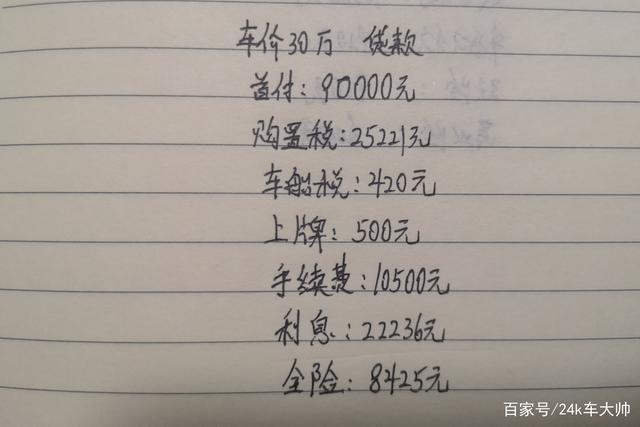 车价30万 贷款
首付：90000元
购置税：25221元
车船税：420元
上牌：500元
手续费：10500元
利息：22236元
全险：8425元
百家号/24k车大帅